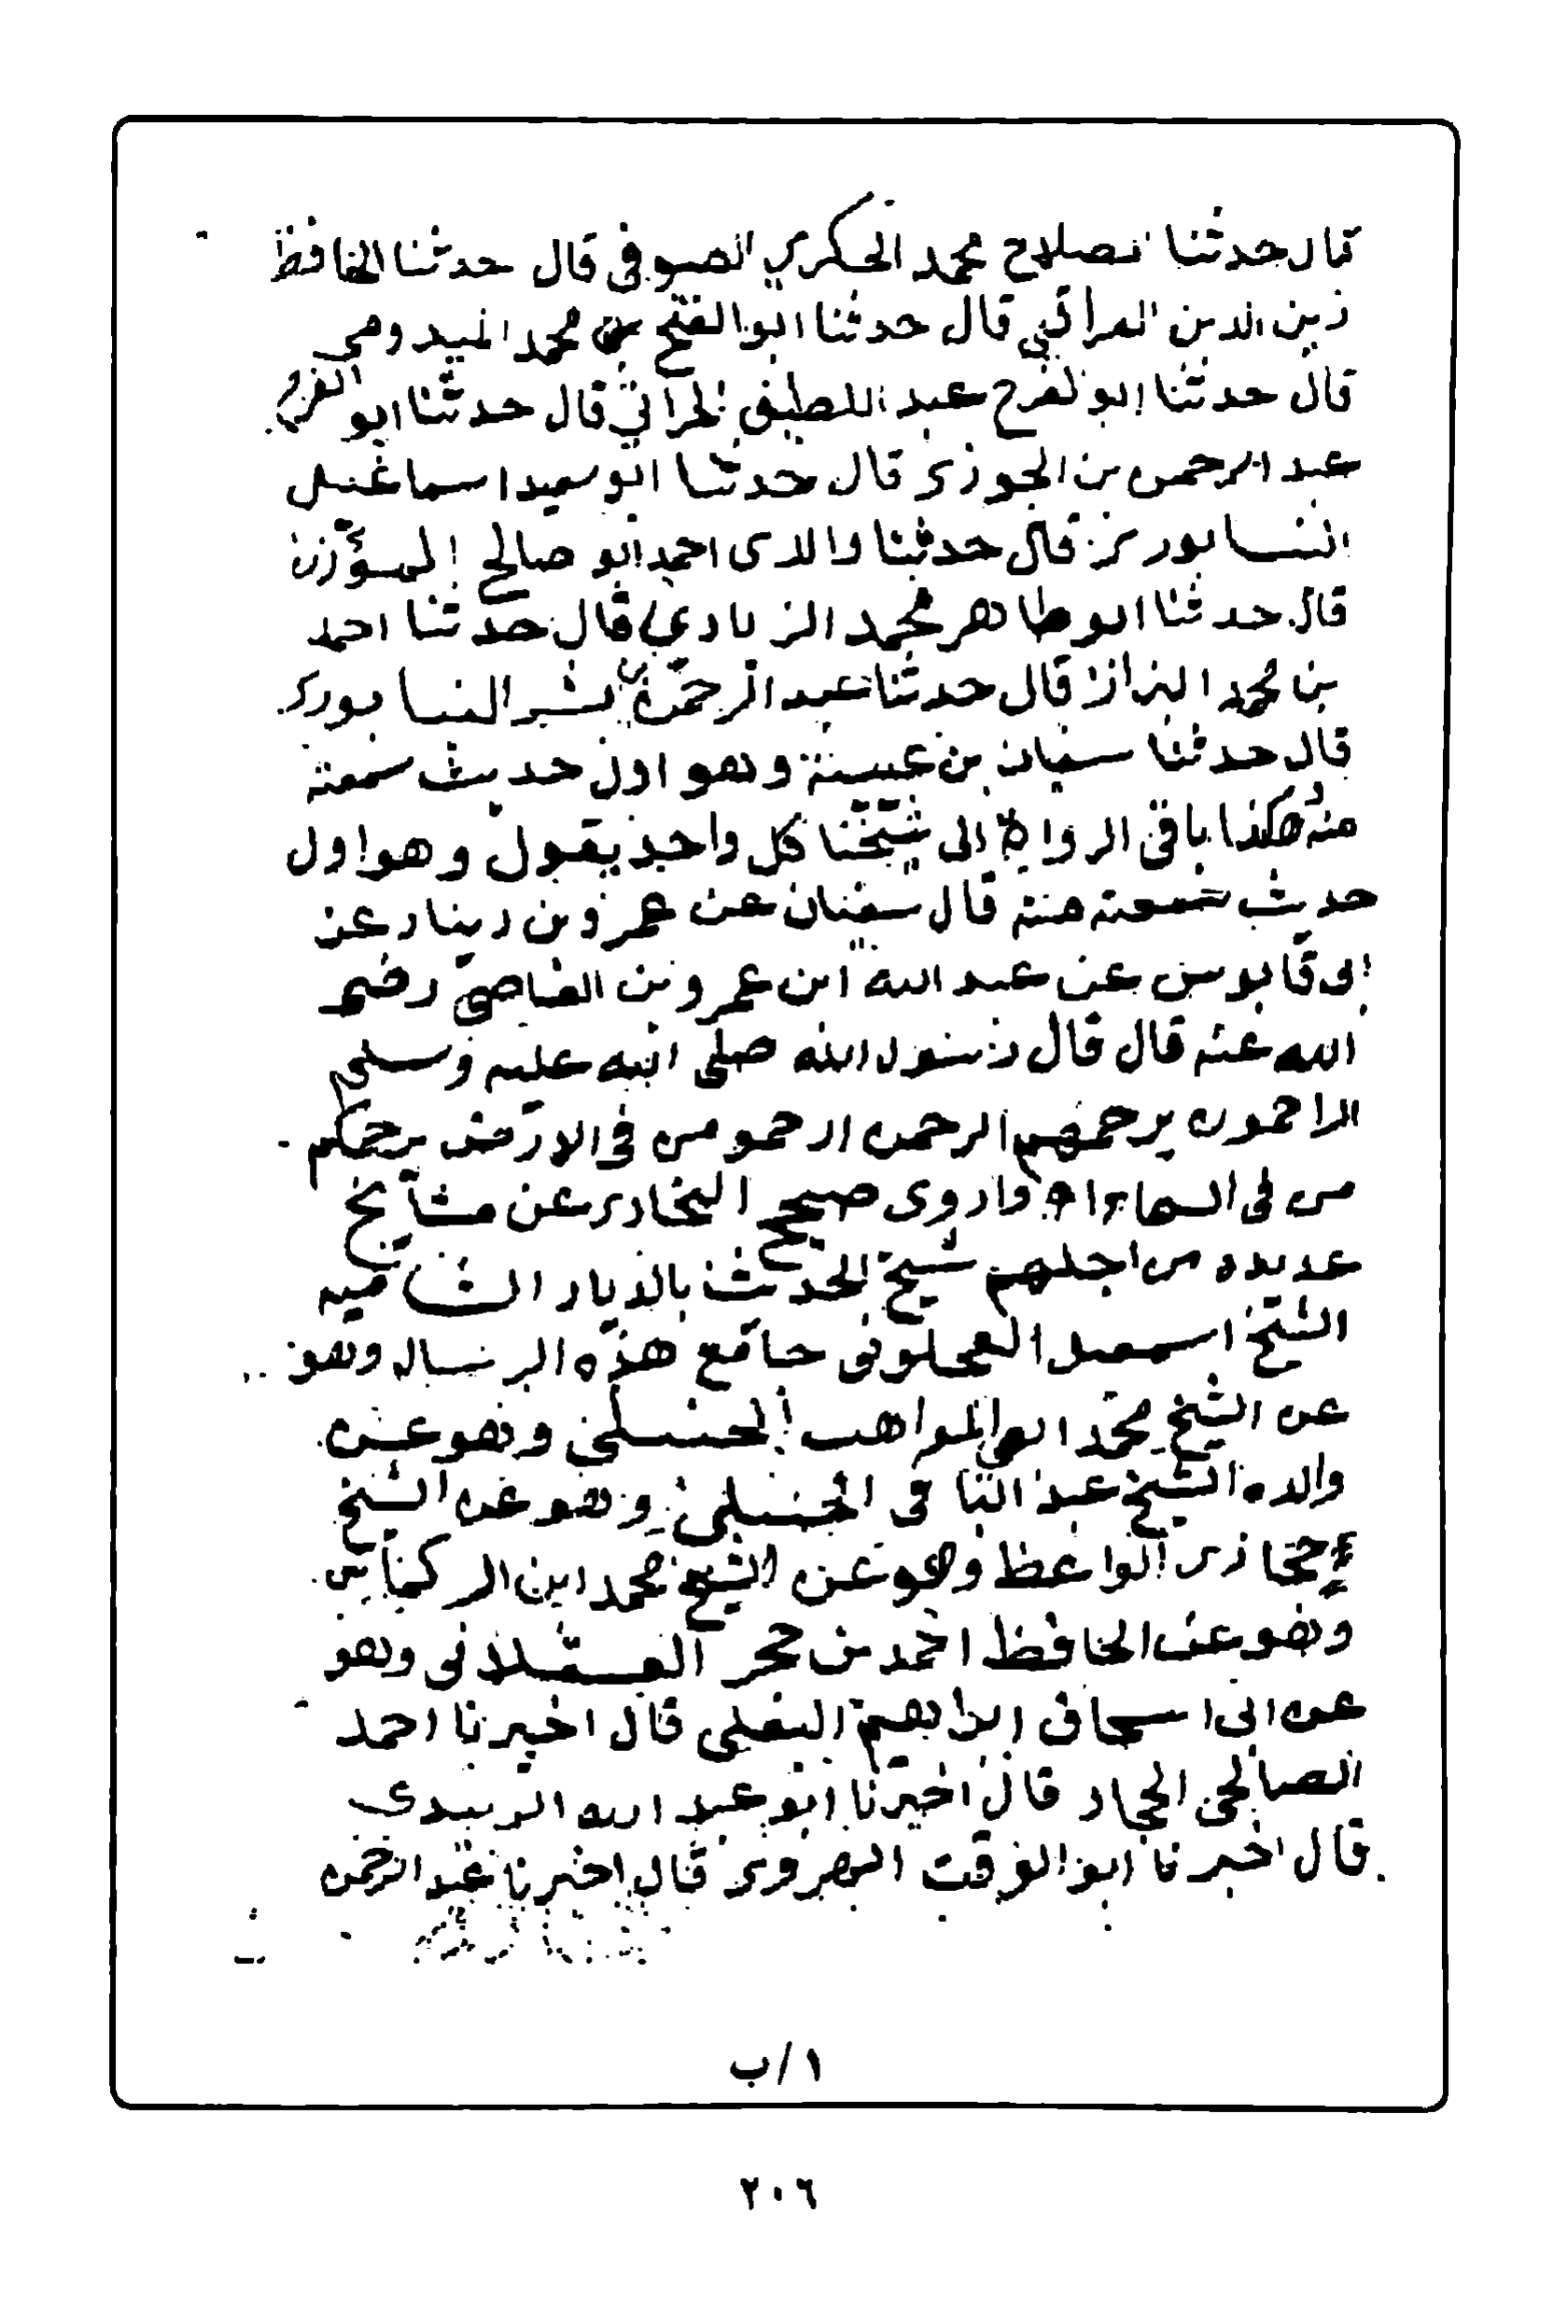 قال حدثنا الصلاح محمد الحكري الصوفي قال حدثنا الحافظ
زين الدين العراقي قال حدثنا ابو الفتح بن محمد الميدومي
قال حدثنا ابو الفرج عبد اللطيف الحراني قال حدثنا ابو الفرج
عبد الرحمن بن الجوزي قال حدثنا ابو سعيد اسماعيل
النيسابوري قال حدثنا والدى احمد ابو صالح المؤذن
قال حدثنا ابو طاهر محمد الزيادي قال حدثنا احمد
بن محمد البزاز قال حدثنا عبد الرحمن بن بشر النيسابوري
قال حدثنا سفيان بن عيينة وهو اول حديث سمعته
منه هكذا باقى الرواة الى شيخنا كل واحد يقول وهو اول
حديث سمعته منه قال سفيان عن عمرو بن دينار عن
ابى قابوس عن عبد الله ابن عمرو بن العاصي رضى
الله عنه قال قال رسول الله صلى الله عليه وسلم
الراحمون يرحمهم الرحمن ارحموا من فى الارض يرحمكم
من فى السماء اه واروى صحيح البخارى عن مشايخ
عديده من اجلهم شيخ الحديث بالديار الشاميه
الشيخ اسمعيل العجلونى جامع هذه الرساله وهو
عن الشيخ محمد ابى المواهب الحنبلى وهو عن
والده الشيخ عبد الباقى الحنبلى وهو عن الشيخ
حجازى الواعظ وهو عن الشيخ محمد ابن اركماس
وهو عن الحافظ احمد بن حجر العسقلانى وهو
عن ابى اسحاق ابراهيم البعلى قال اخبرنا احمد
الصالحى الحجار قال اخبرنا ابو عبد الله الزبيدى
قال اخبرنا ابو الوقت الهروى قال اخبرنا عبد الرحمن
١/ب
٢٠٦